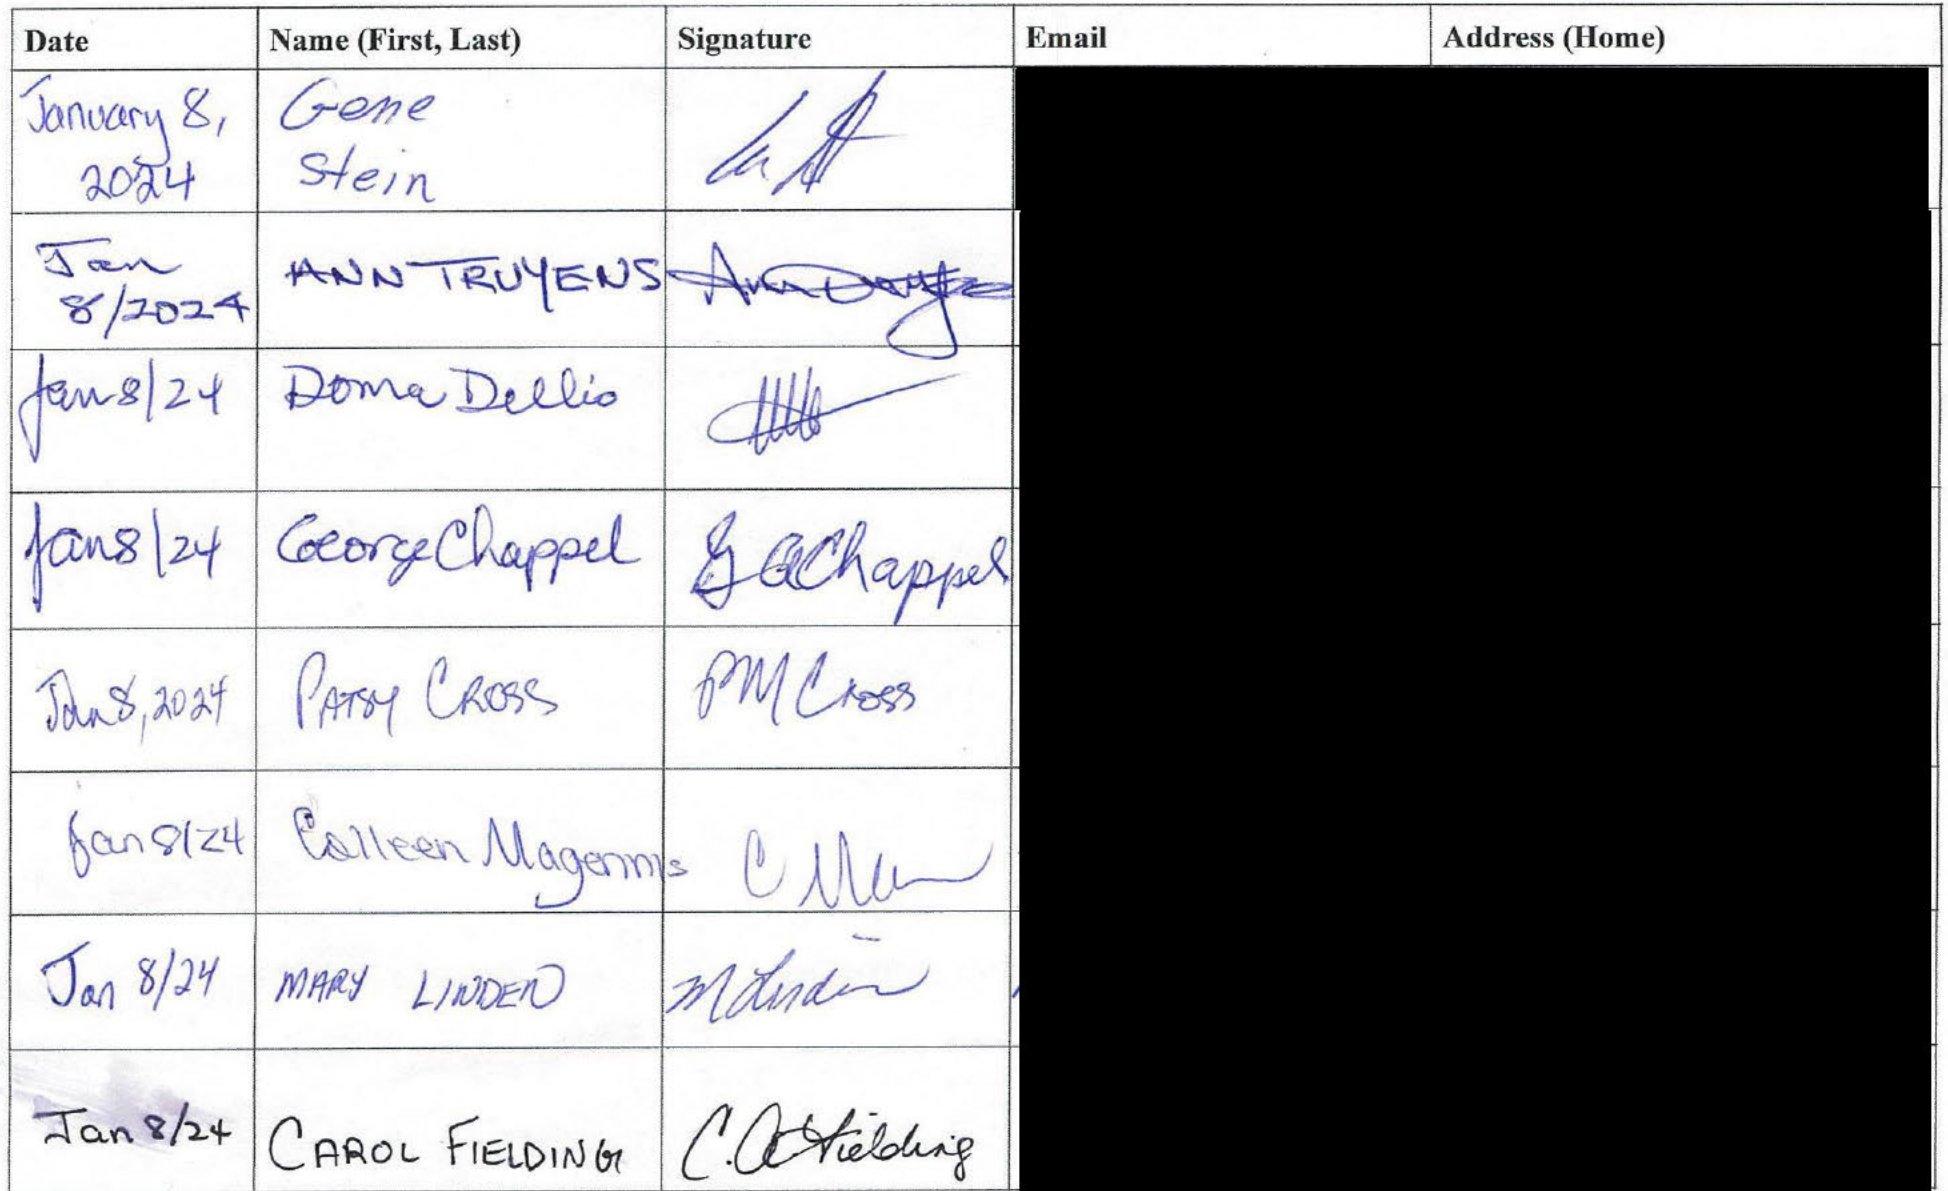 Date Name (First, Last) Signature Email Address (Home)
January 8, Gene
2024 Stein
Jan ANN TRUYENS
8/2024
Jan 8/24 Donna Dellio
Jan 8/24 George Chappel G A Chappel
Jan 8, 2024 PATSY CROSS PM Cross
Jan 8/24 Colleen
Jan 8/24 MARY LINDEN M Linden
Jan 8/24 CAROL FIELDING C. A Fielding